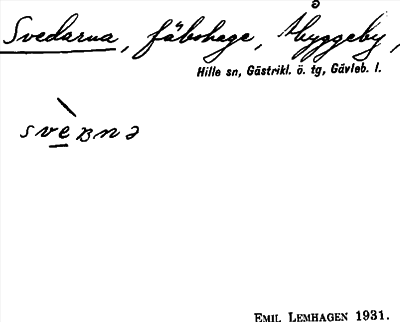 Svedarna, fäbohage, Åbyggeby,
Hille sn, Gästrikl. ö. tg, Gävleb. l.
EMIL LEMHAGEN 1931.